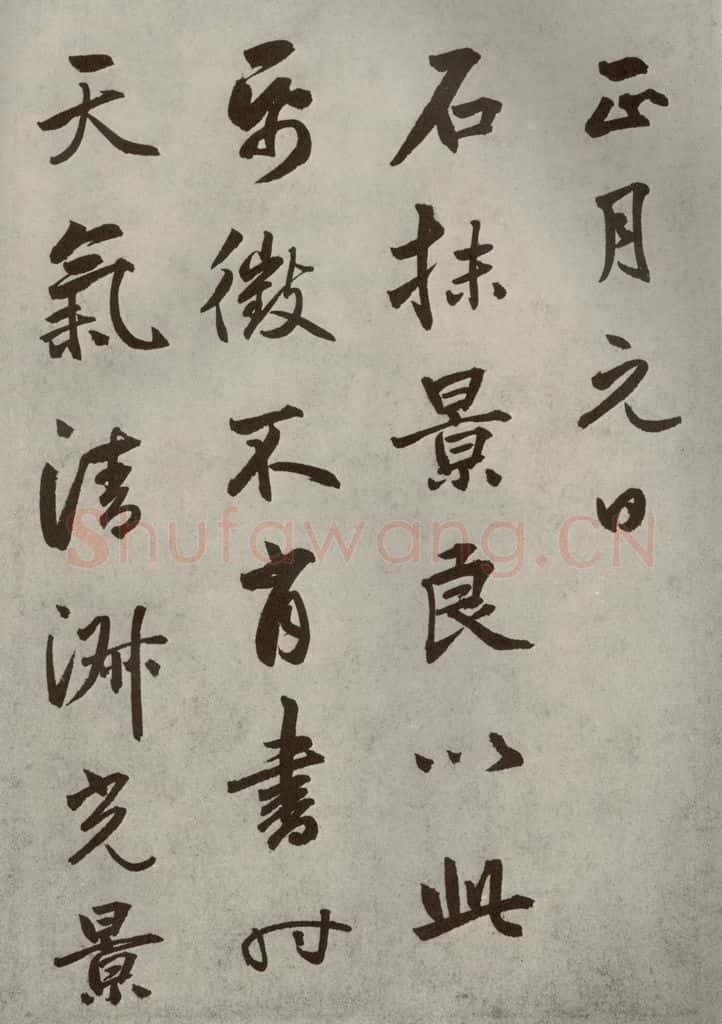 正月元日
石抹景良以此
帋徵不肖書時
天氣清淑光景
Shufawang.CN